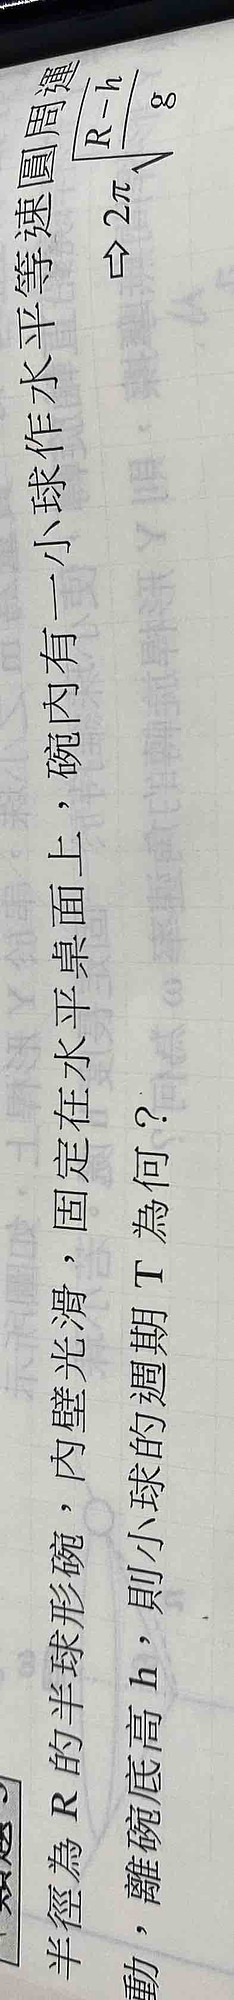 半徑為 R 的半球形碗，內壁光滑，固定在水平桌面上，碗內有一小球作水平等速圓周運
動，離碗底高 h，則小球的週期 T 為何？
⇨ 2π√((R−h)/g)